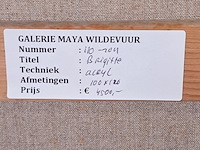 GALERIE MAYA WILDEVUUR
Nummer : 110-1011
Titel : Brigitte
Techniek : acryl
Afmetingen : 100x120
Prijs : € 4500,-